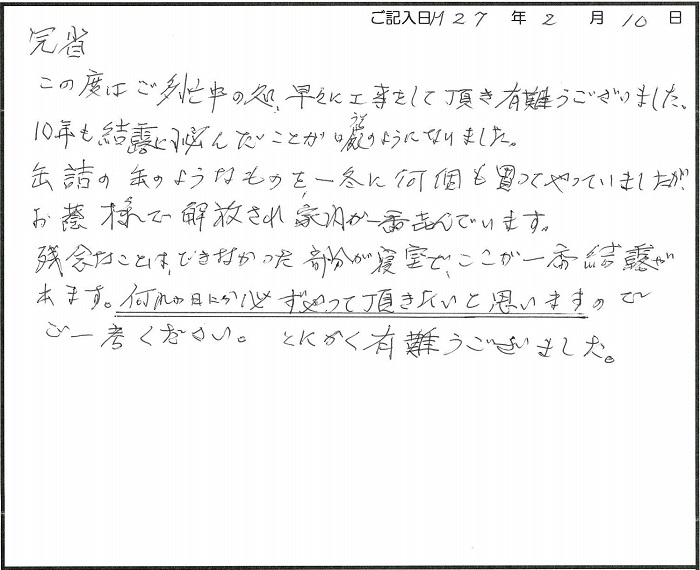 ご記入日 H27 年 2 月 10 日
冠省
この度はご多忙中の処、早々に工事をして頂き有難うございました。
10年も結露に悩んだことが嘘のようになりました。
うそ
缶詰の缶のようなものを、一冬に何個も買ってやっていましたが、
お蔭様で解放され家内が一番喜んでいます。
残念なことは、できなかった部分が寝室で、ここが一番結露が
出ます。何れの日にか必ずやって頂きたいと思いますので
ご一考ください。 とにかく有難うございました。